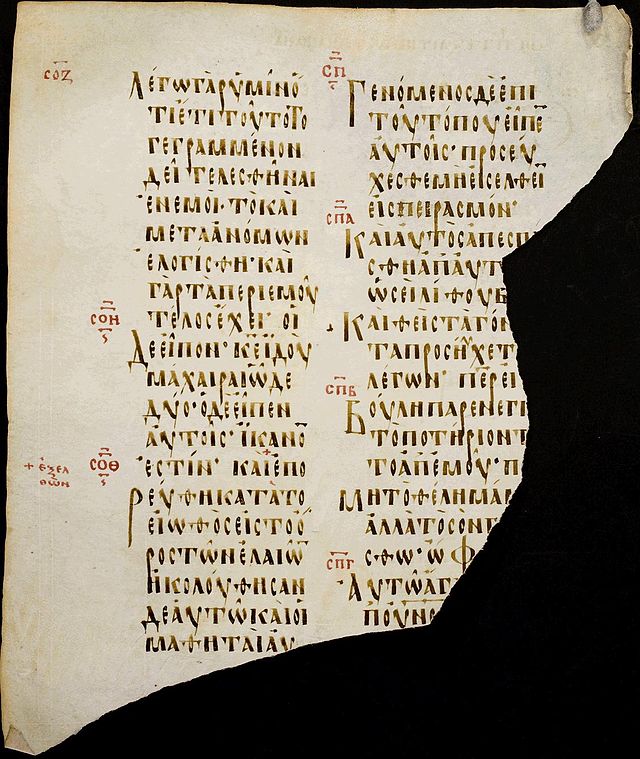 ϹΟΖ
ΛΕΓΩΓΑΡΥΜΙΝΟ̅
ΤΙΕΤΙΤΟΥΤΟΤΟ
ΓΕΓΡΑΜΜΕΝΟΝ
ΔΕΙΤΕΛΕϹΘΗΝΑΙ
ΕΝΕΜΟΙ·ΤΟΚΑΙ
ΜΕΤΑΑΝΟΜΩΝ
ΕΛΟΓΙϹΘΗ·ΚΑΙ
ΓΑΡΤΑΠΕΡΙΕΜΟΥ
ϹΟΗ
ΤΕΛΟϹΕΧΕΙ·ΟΙ
ΔΕΕΙΠΟΝ·ΚΕΙΔΟΥ
ΜΑΧΑΙΡΑΙΩΔΕ
ΔΥΟ·ΟΔΕΕΙΠΕΝ
ΑΥΤΟΙϹ·ΙΚΑΝΟ̅
ϹΟΘ
ΕϹΤΙΝ·ΚΑΙ+ΕΠΟ
+ΕΞΕΛ
ΘΩΝ
ΡΕΥΘΗΚΑΤΑΤΟ
ΕΙΩΘΟϹΕΙϹΤΟΟ
ΡΟϹΤΩΝΕΛΑΙΩ̅
ΗΚΟΛΟΥΘΗϹΑΝ
ΔΕΑΥΤΩΚΑΙΟΙ
ΜΑΘΗΤΑΙΑΥ
ϹΠ
ΓΕΝΟΜΕΝΟϹΔΕΕΠΙ
ΤΟΥΤΟΠΟΥΕΙΠΕ̅
ΑΥΤΟΙϹ·ΠΡΟϹΕΥ
ΧΕϹΘΕΜΗΕΙϹΕΛΘΕΙ̅
ΕΙϹΠΕΙΡΑϹΜΟΝ·
ϹΠΑ
ΚΑΙΑΥΤΟϹΑΠΕϹΠ
ϹΘΗΑΠΑΥΤ
ΩϹΕΙΛΙΘΟΥΒ
ΚΑΙΘΕΙϹΤΑΓΟΝ
ΤΑΠΡΟϹΗΧΕΤ
ΛΕΓΩΝ·ΠΕΡΕΙ
ϹΠΒ
ΒΟΥΛΗΠΑΡΕΝΕΓΚ
ΤΟΠΟΤΗΡΙΟΝΤ
ΤΟΑΠΕΜΟΥ·Π
ΜΗΤΟΘΕΛΗΜΑΜ
ΑΛΛΑΤΟϹΟΝΓ
ϹΘΩ·ΩΦ
ϹΠΓ
ΑΥΤΩΑΓ
ΠΟΥΝΟ